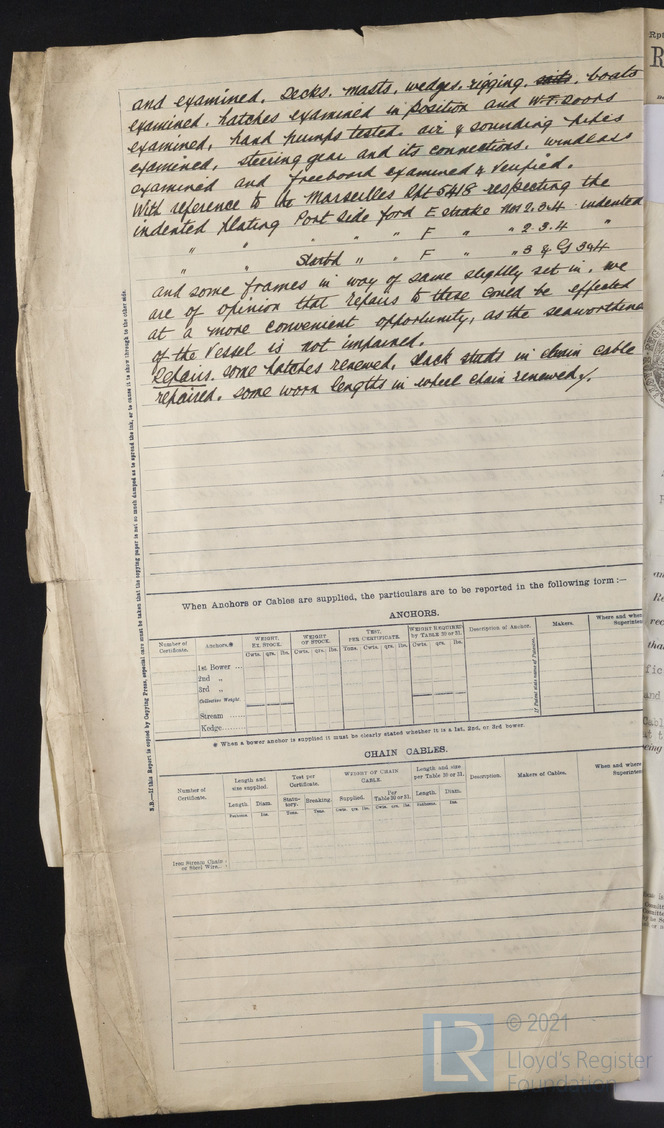 and examined. Decks. masts. wedges. rigging. sails. boats
examined. hatches examined in position and W.T. Doors
examined, hand pumps tested. air & sounding pipes
examined, steering gear and its connections, windlass
examined and freeboard examined & verified.
With reference to the Marseilles Rpt 5418 respecting the
indented plating Port side ford E strake Nos 2.3.4 indented
" " " " " F " " 2.3.4 "
" " Starbd " " F " " 3 & G 3&4
and some frames in way of same slightly set in, we
are of opinion that repairs to these could be effected
at a more convenient opportunity, as the seaworthiness
of the Vessel is not impaired.
Repairs. some hatches renewed. slack studs in chain cable
repaired. some worn lengths in wheel chain renewed.
N.B.—If this Report is copied by Copying Press, especial care must be taken that the copying paper is not so much damped as to spread the ink, or to cause it to show through to the other side.
When Anchors or Cables are supplied, the particulars are to be reported in the following form :—
ANCHORS.
Number of Certificate. Anchors.* WEIGHT. EX. STOCK. WEIGHT OF STOCK. TEST. PER CERTIFICATE. WEIGHT REQUIRED by TABLE 30 or 31. Description of Anchor. Makers. Where and when Superinten
Cwts. qrs. lbs. Cwts. qrs. lbs. Tons. Cwts. qrs. lbs. Cwts. qrs. lbs.
1st Bower ...
2nd "
3rd "
Collective Weight.
Stream ......
Kedge
If Patent state name of Patentee.
* When a bower anchor is supplied it must be clearly stated whether it is a 1st, 2nd, or 3rd bower.
CHAIN CABLES.
Number of Certificate. Length and size supplied. Test per Certificate. WEIGHT OF CHAIN CABLE. Length and size per Table 30 or 31. Description. Makers of Cables. When and where Superinten
Length. Diam. Statutory. Breaking. Supplied. Per Table 30 or 31. Length. Diam.
Fathoms. Ins. Tons. Tons. Cwts. qrs. lbs. Cwts. qrs. lbs. Fathoms. Ins.
Iron Stream Chain or Steel Wire
LR
© 2021
Lloyd's Register
Foundation